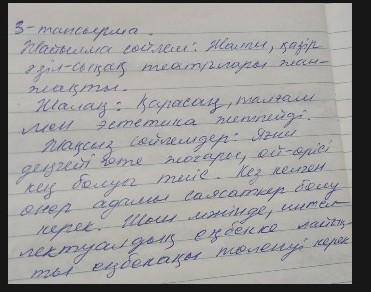 3-тапсырма.
Жайылма сөйлем: Жалпы, қазір
әзіл-сықақ театрлары жан-
жақты.
Жалаң: Қарасаң, талғам
мен эстетика жетпейді.
Жақсыз сөйлемдер: Яғни
деңгейі өте жоғары, ой-өрісі
кең болуы тиіс. Кез келген
өнер адамы саясаткер болу
керек. Шын мәнінде, интел-
лектуалдық еңбекке лайық-
ты еңбекақы төленуі керек